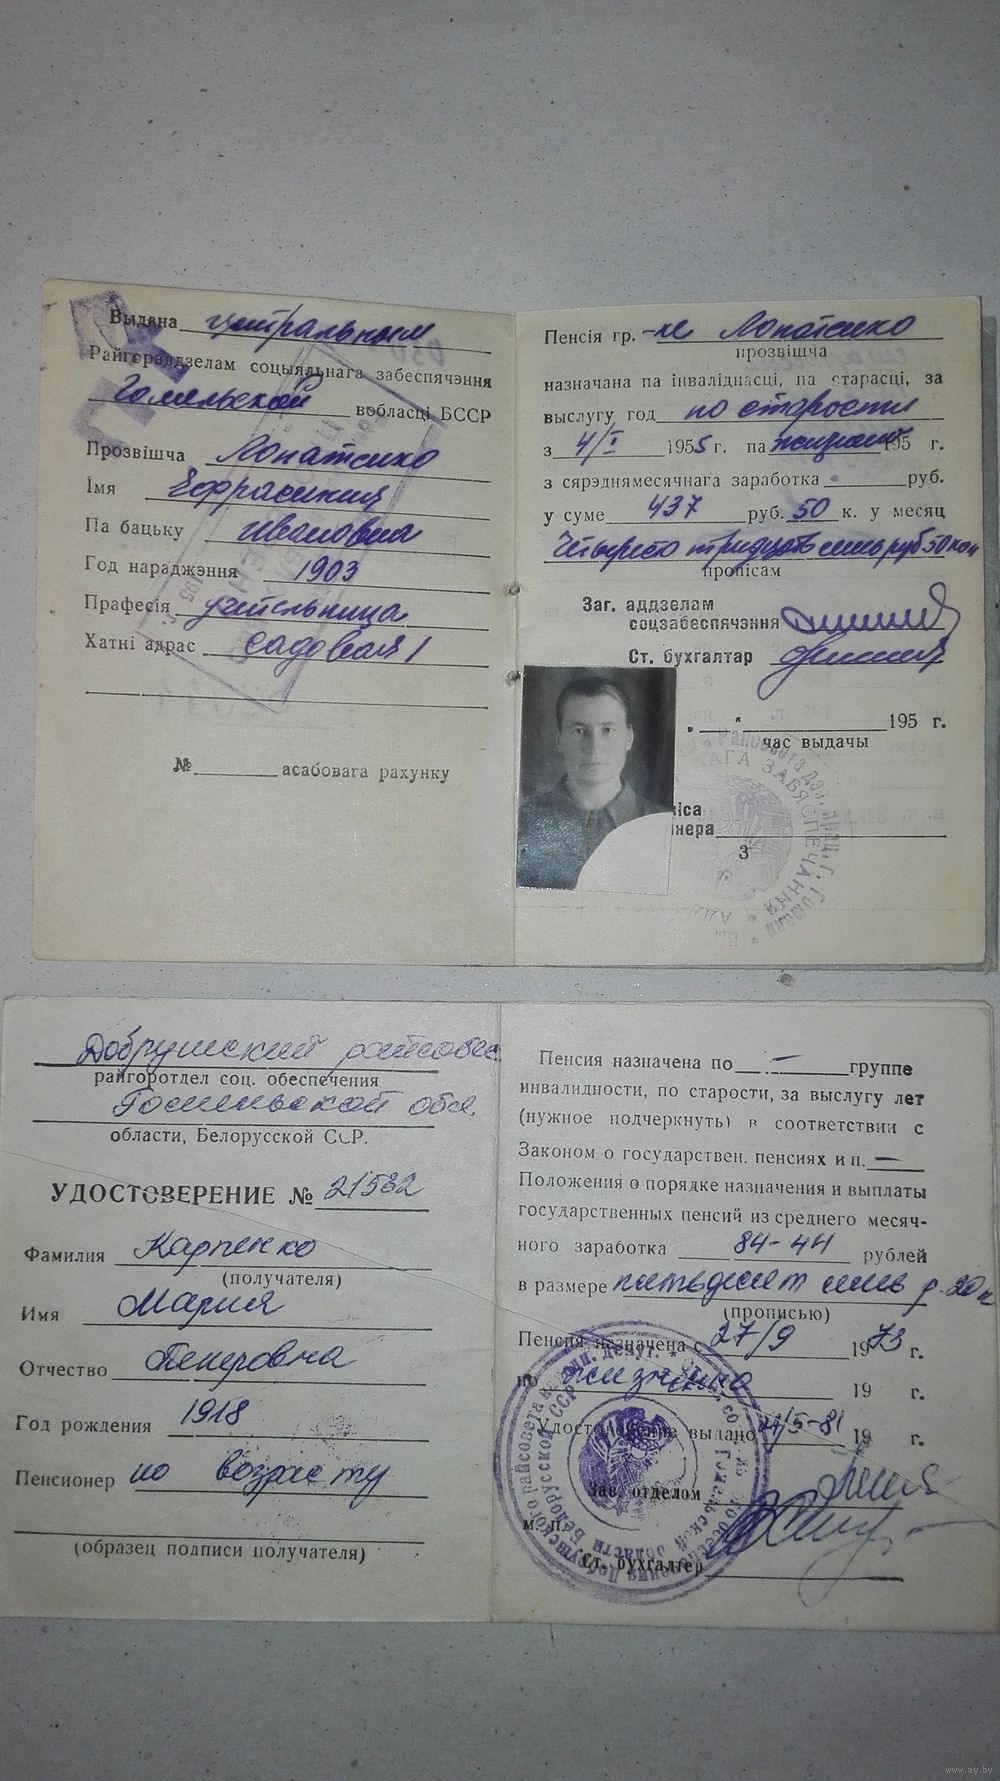 Выдана центральным
Райгораддзелам соцыяльнага забеспячэння
Гомельской вобласці БССР
Прозвішча Лопатенко
Імя Ефросиния
Па бацьку Ивановна
Год нараджэння 1903
Прафесія учительница
Хатні адрас Садовая 1
№ асабовага рахунку
Пенсія гр.-ке Лопатенко
прозвішча
назначана па інваліднасці, па старасці, за
выслугу год по старости
з 4/I 1955 г. па пожизненно 195 г.
з сярэднямесячнага заработка руб.
у суме 437 руб. 50 к. у месяц
Четыреста тридцать семь руб 50 коп
пропісам
Заг. аддзелам
соцзабеспячэння
Ст. бухгалтар
„ “ 195 г.
час выдачы
3
Добрушский райсобес
райгоротдел соц. обеспечения
Гомельской обл.
области, Белорусской ССР.
УДОСТОВЕРЕНИЕ № 21582
Фамилия Карпенко
(получателя)
Имя Мария
Отчество Петровна
Год рождения 1918
Пенсионер по возрасту
(образец подписи получателя)
Пенсия назначена по — группе
инвалидности, по старости, за выслугу лет
(нужное подчеркнуть) в соответствии с
Законом о государствен. пенсиях и п. —
Положения о порядке назначения и выплаты
государственных пенсий из среднего месяч-
ного заработка 84-44 рублей
в размере пятьдесят семь р. 20 к
(прописью)
Пенсия назначена с 27/9 1973 г.
по жизненно 19 г.
Удостоверение выдано 21/5-81 19 г.
Зав. отделом
м. п.
Ст. бухгалтер
www.ay.by